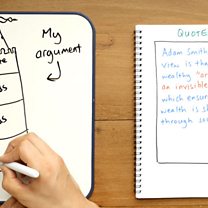 My
argument
QUOTE
Adam Smith
view is tha
wealthy "ar
an invisible
which ensur
wealth is s
through so